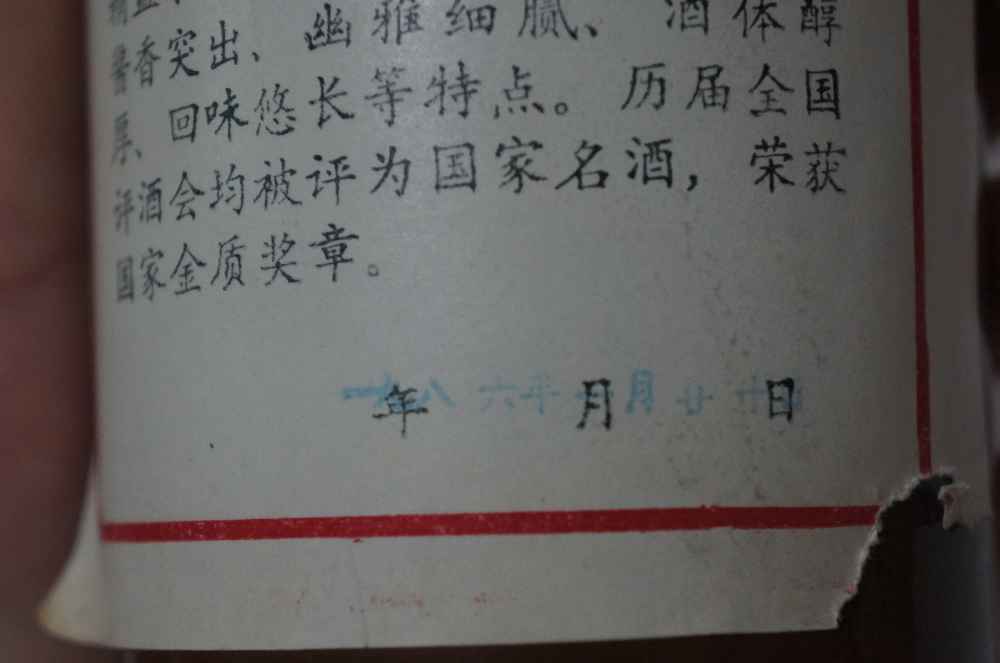 酱香突出、幽雅细腻、酒体醇
厚、回味悠长等特点。历届全国
评酒会均被评为国家名酒，荣获
国家金质奖章。
年 月 日
一九八六年 月廿 日